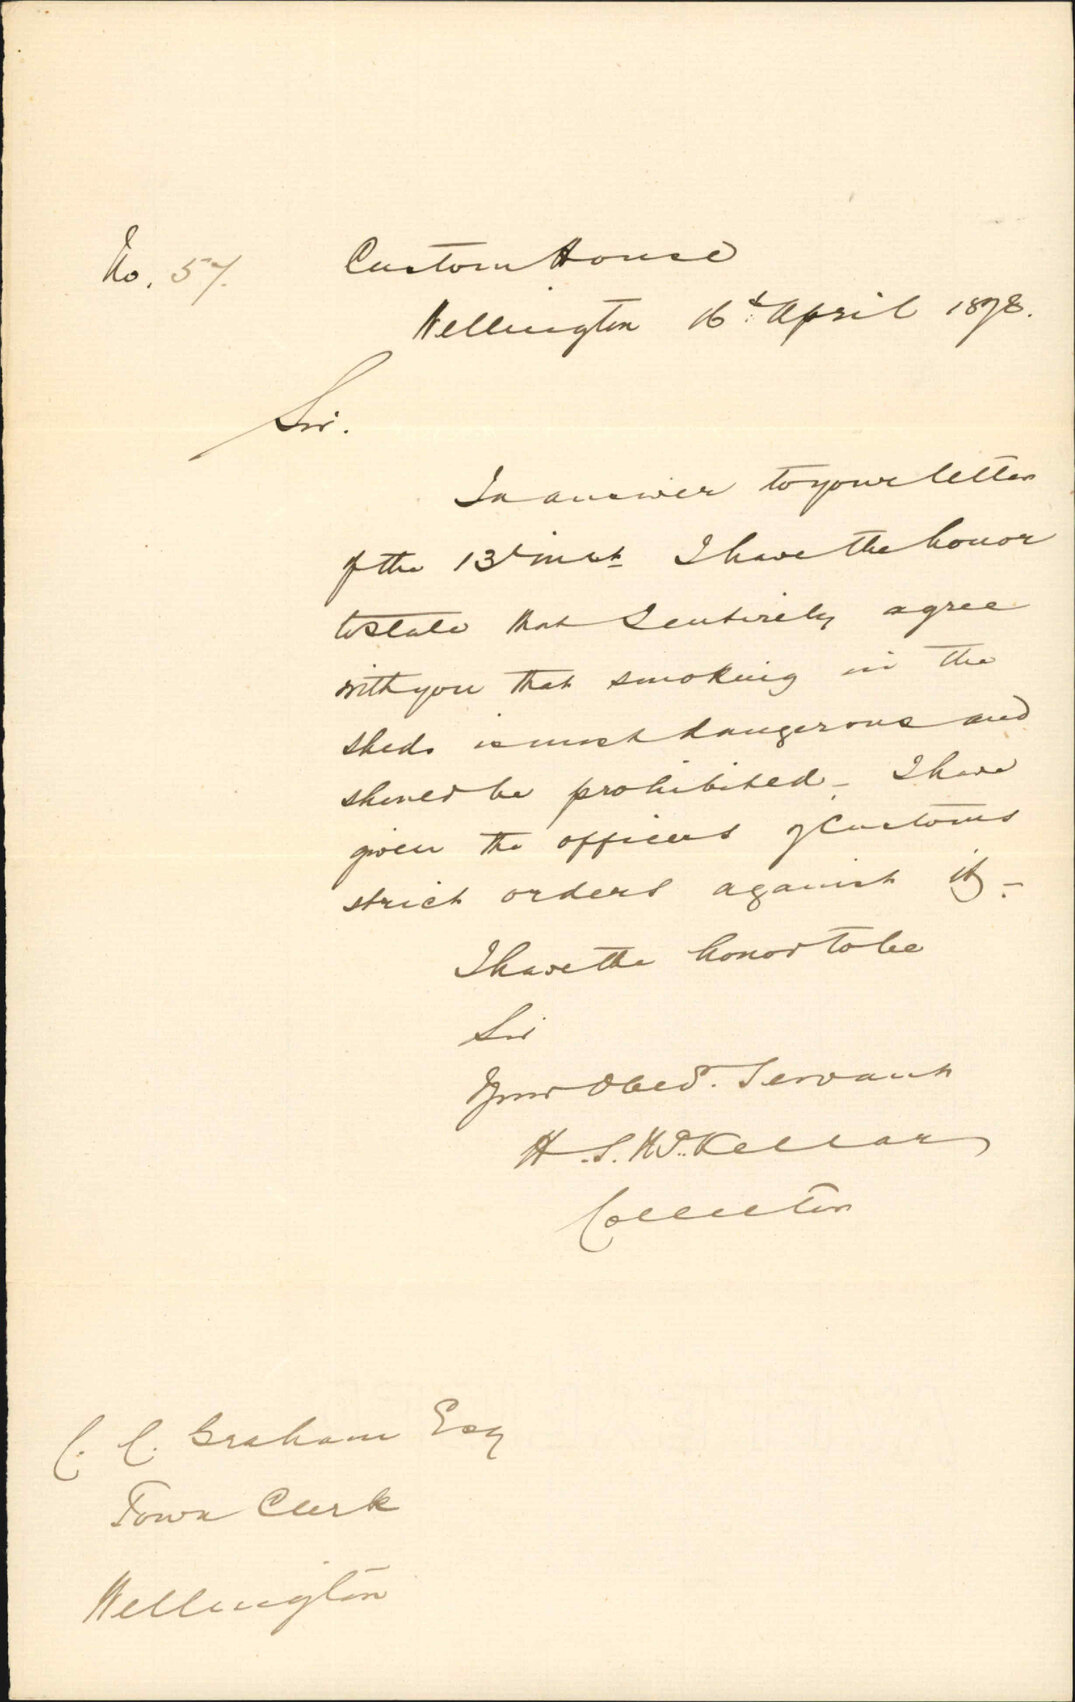 No. 57. Custom House
Wellington 16th April 1878.
Sir.
In answer to your letter
of the 13th inst I have the honor
to state that I entirely agree
with you that smoking in the
sheds is most dangerous and
should be prohibited - I have
given the officers of Customs
strict orders against it -
I have the honor to be
Sir
Your Obed. Servant
H. S. McKellar
Collector
C. C. Graham Esq
Town Clerk
Wellington